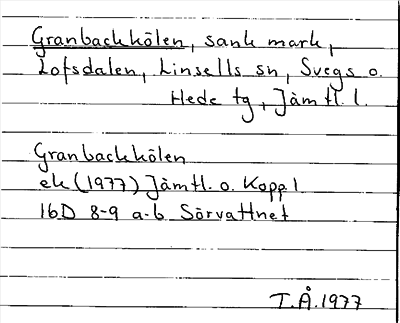 Granbackkölen, sank mark,
Lofsdalen, Linsells sn, Svegs o.
Hede tg, Jämtl. l.
Granbackkölen
ek (1977) Jämtl. o. Kopp l
16D 8-9 a-b Sörvattnet
T.Å. 1977